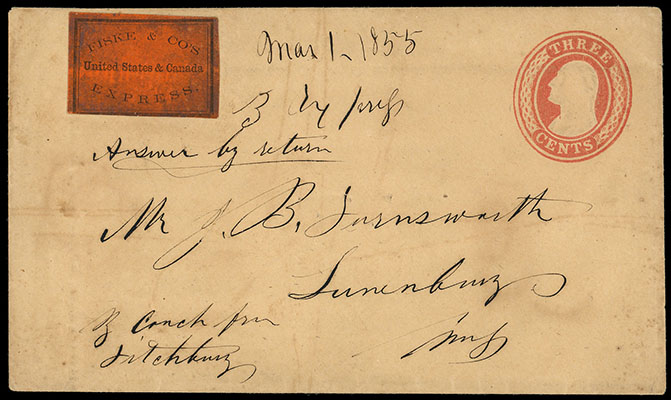 FISKE & CO'S
United States & Canada
EXPRESS.
Mar 1. 1855
THREE
CENTS
Answer by return
Mr J. B. Farnsworth
Lunenburg
Mass
By Coach from
Fitchburg